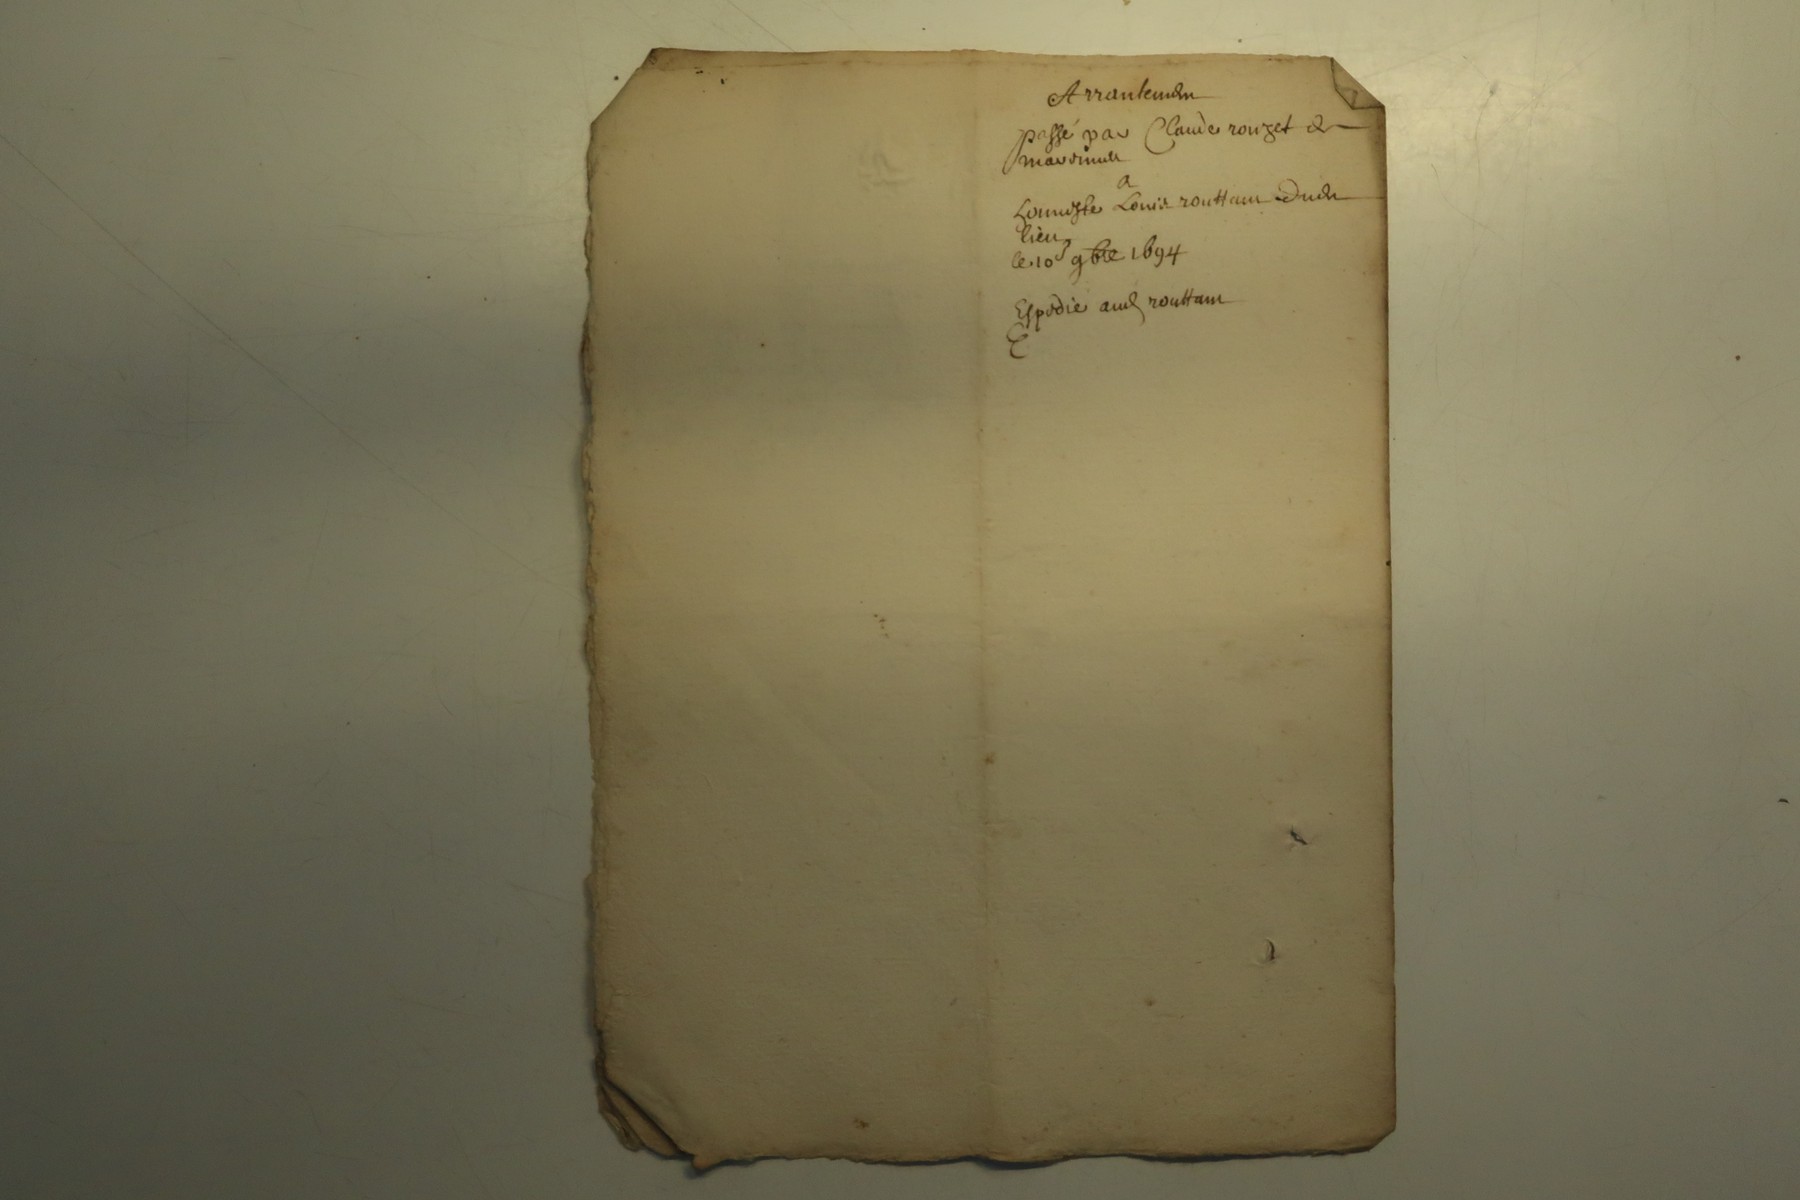 Arrantemen
passé par Claude rouzet de
mavouuet
a
honneste Louis routtam Dudi
lieu
le 10e 9bre 1694
Espedie aud routtam